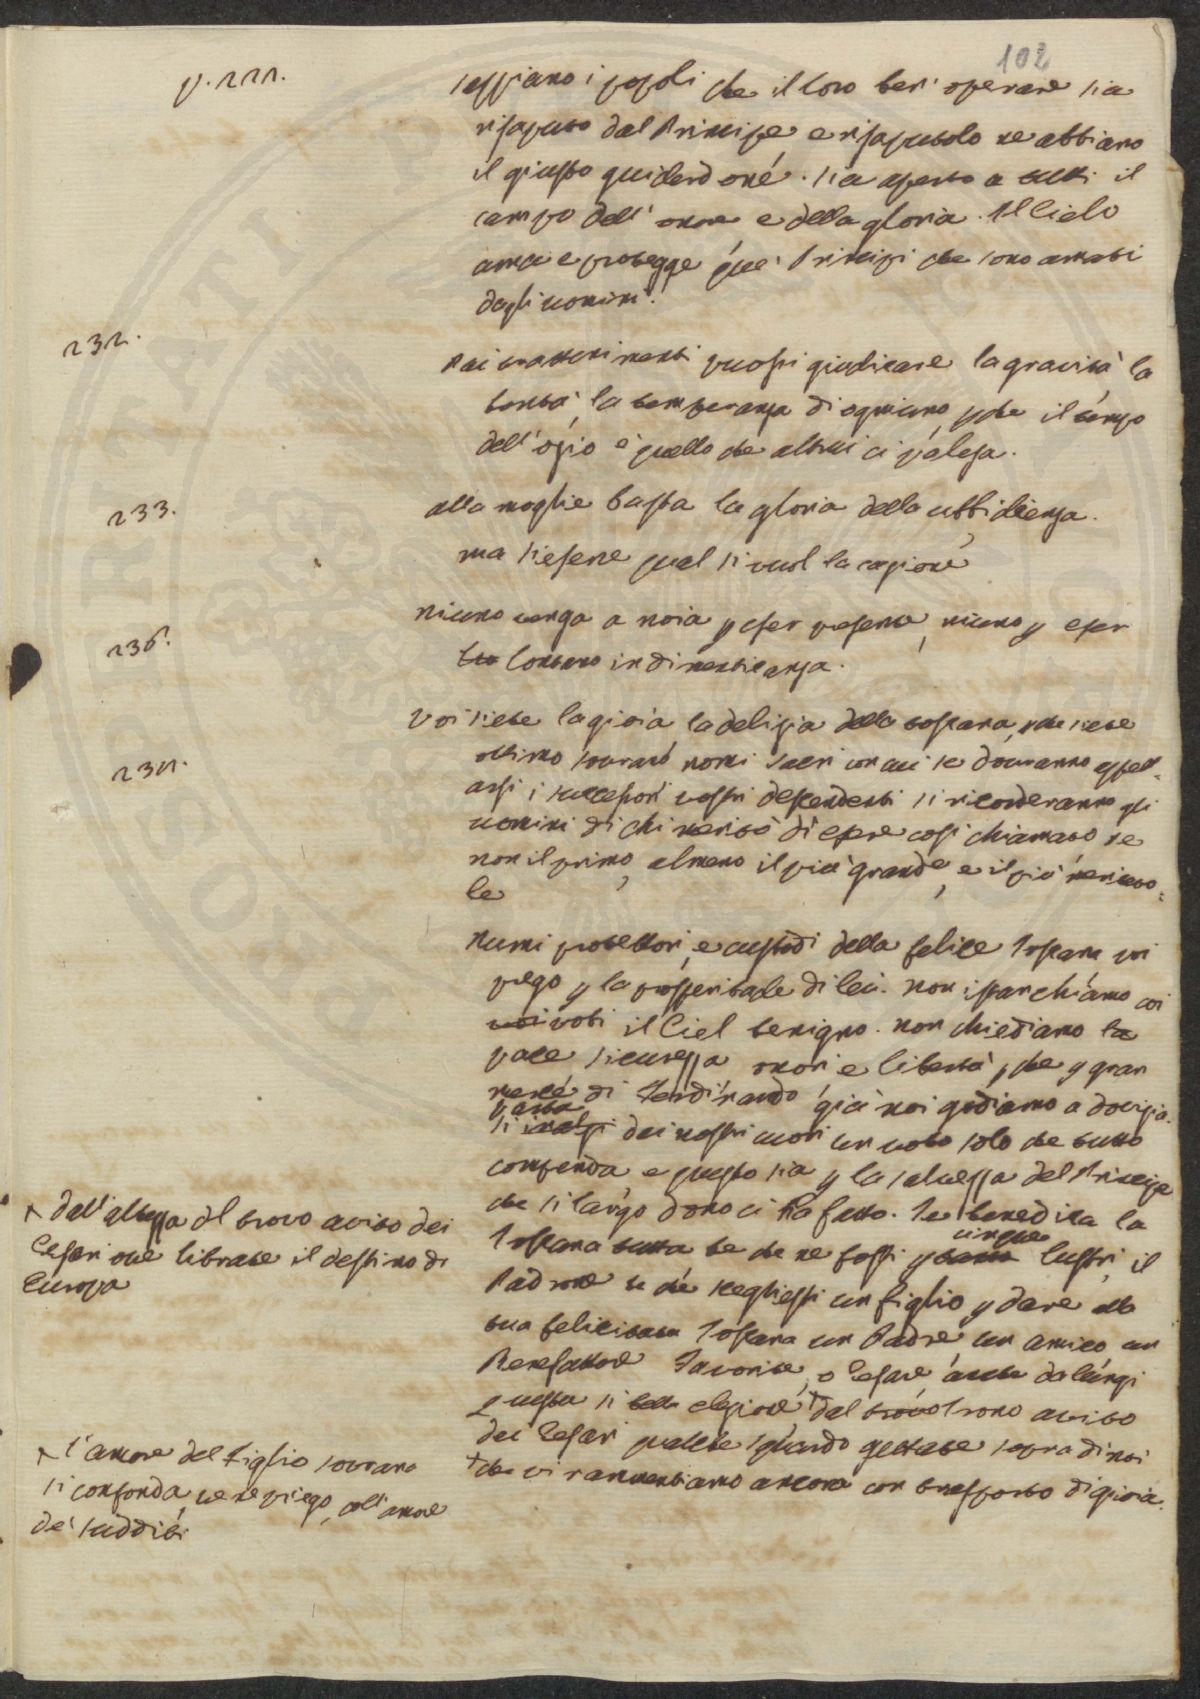 102
p. 221.
sappiano i popoli che il loro ben operare sia
risaputo dal Principe, e risaputolo ne abbiano
il giusto guiderdone. sia aperto a tutti il
campo dell' onore e della gloria. Il Cielo
ama e protegge que' Principi che sono amati
dagli uomini.
232.
Dai trattenimenti puossi giudicare la gravità la
bontà, la temperanza di ogniuno, pche il tempo
dell' ozio è quello che altrui ci palesa.
233.
alla moglie basta la gloria della ubbidienza.
ma siesene qual si vuol la cagione
236.
niuno venga a noia p esser presente, niuno p esser
lontano in dimenticanza.
voi siete la gioia la delizia della toscana, pche siete
ottimo sovrano nomi sacri con cui se dovranno appell-
arsi i successori vostri descendenti si ricorderanno gli
uomini di chi meritò di essere così chiamato se
non il primo, almeno il più grande, e il più meritevo=
le
Numi protettori, e custodi della felice Toscana voi
prego p la prosperità di lei. Non istanchiamo coi
voti il Ciel benigno. non chiediamo la
pace sicurezza onori e libertà, che p gran
mercé di Ferdinando già noi godiamo a dovizia.
parta
Si dai nostri cuori un voto solo che tutto
comprenda e questo sia p la salvezza del Principe
che sì largo dono ci ha fatto. Te benedica la
cinque
Toscana tutta te che ne fossi p lustri, il
Padrone te che scegliesti un figlio p dare alla
tua felicitata Toscana un Padre, un amico un
Benefattore Favorite, o Cesare da lungi
questa sì elezione, dal trono avito
dei Cesari qualche sguardo gettate sopra di noi
che vi rammentiamo ancora con trasporto di gioia.
x dall'altezza del trono avito dei
Cesari ove librate il destino di
Europa
x l'amore del Figlio sovrano
si confonda, ve ne priego, coll'amore
de' sudditi